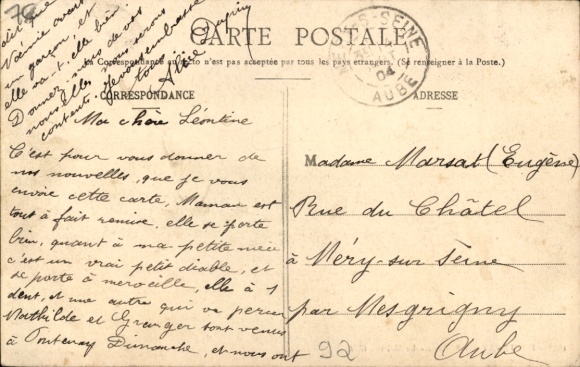 CARTE POSTALE
La Correspondance au recto n'est pas acceptée par tous les pays étrangers. (Se renseigner à la Poste.)
CORRESPONDANCE
ADRESSE
MÉRY-S-SEINE
04
AUBE
Ma chère Léontine
C'est pour vous donner de
nos nouvelles, que je vous
envoie cette carte, Maman est
tout à fait remise, elle se porte
bien, quant à ma petite nièce
c'est un vrai petit diable, et
se porte à merveille, elle a 1
dent, et une autre qui va percer
Mathilde et Granger sont venus
à Fontenay Dimanche, et nous ont
dit que
Noémie avait
un garçon, et
elle va-t-elle bien.
Donnez-nous de vos
nouvelles nous serons
contents. Je vous embrasse
tous
Madame Marsat (Eugène)
Rue du Châtel
à Méry-sur Seine
par Mesgrigny
Aube
92